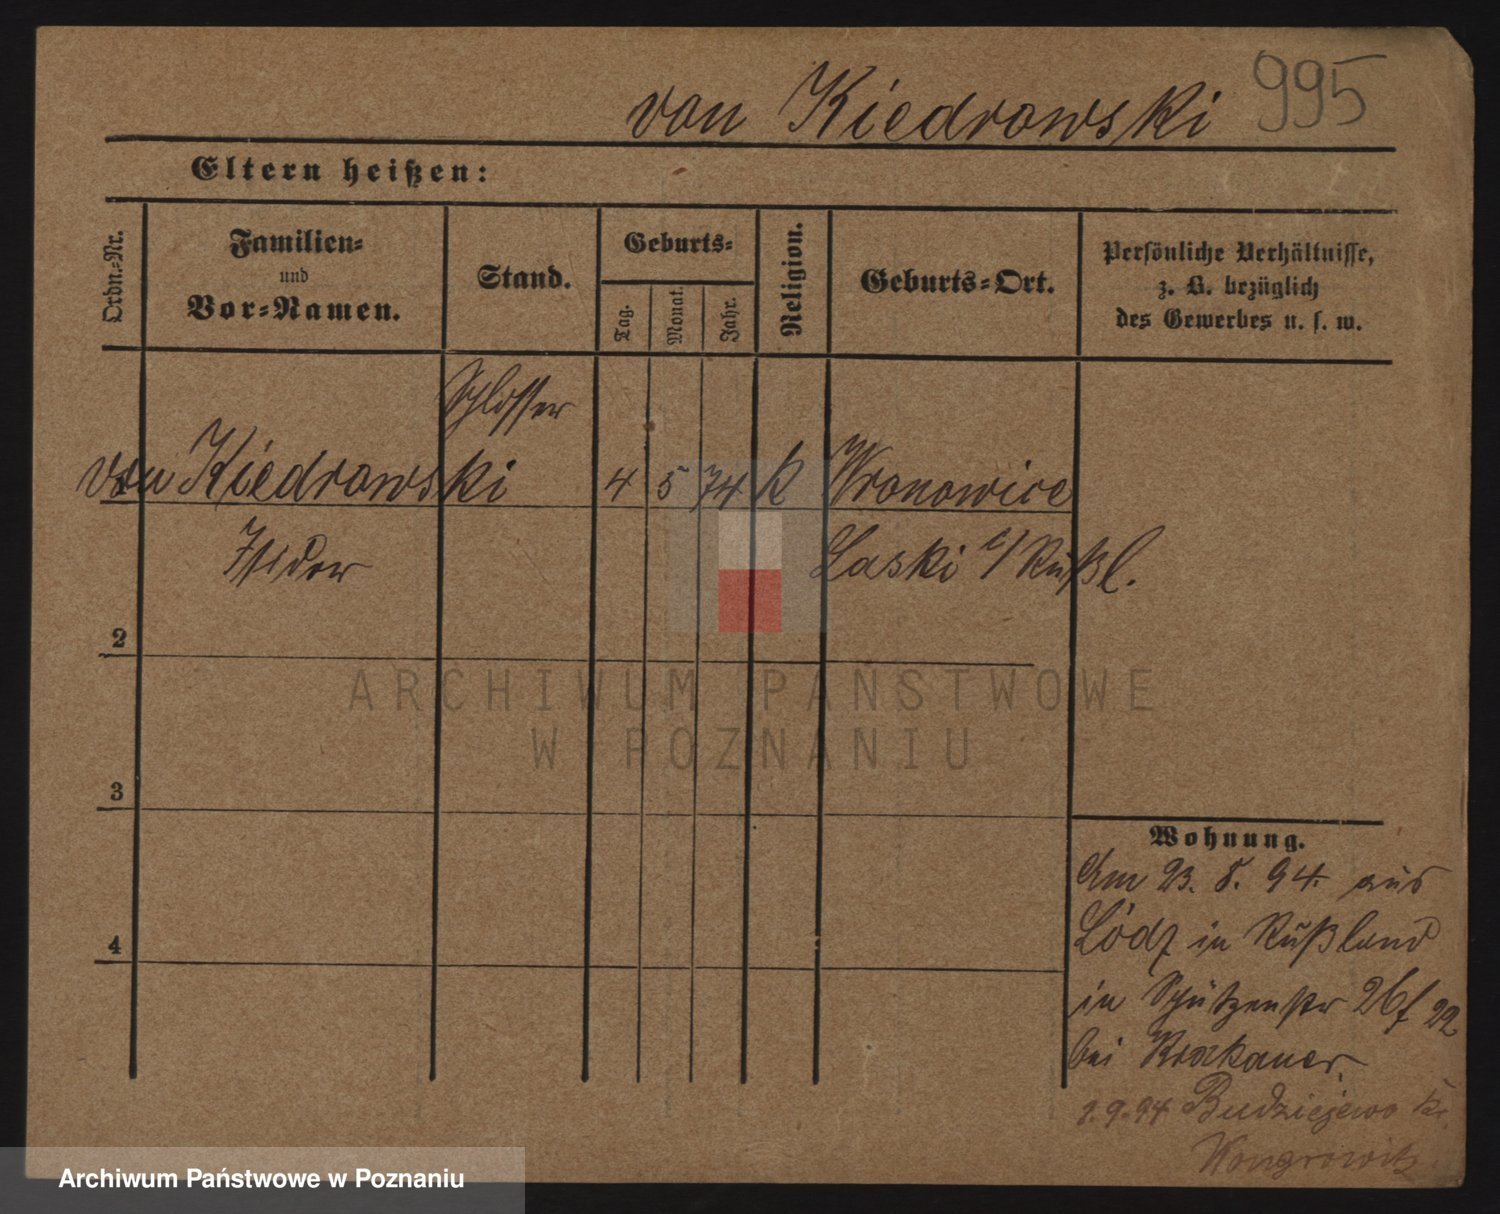 von Kiedrowski 995
Eltern heißen:
Ordn.-Nr.
Familien-
und
Vor-Namen.
Stand.
Geburts-
Tag.
Monat.
Jahr.
Religion.
Geburts-Ort.
Persönliche Verhältnisse,
z. B. bezüglich
des Gewerbes u. s. w.
Schlosser
von Kiedrowski 4 5 74 k Wronowice
Isidor Laski i/ Rußl.
2
ARCHIWUM PAŃSTWOWE
W POZNANIU
3
Wohnung.
Am 23. 8. 94. aus
Lódz in Rußland
4
in Schützenstr 26 f 22
bei Krakauer.
1.9.94 Budziejewo Kr.
Wongrowitz
Archiwum Państwowe w Poznaniu